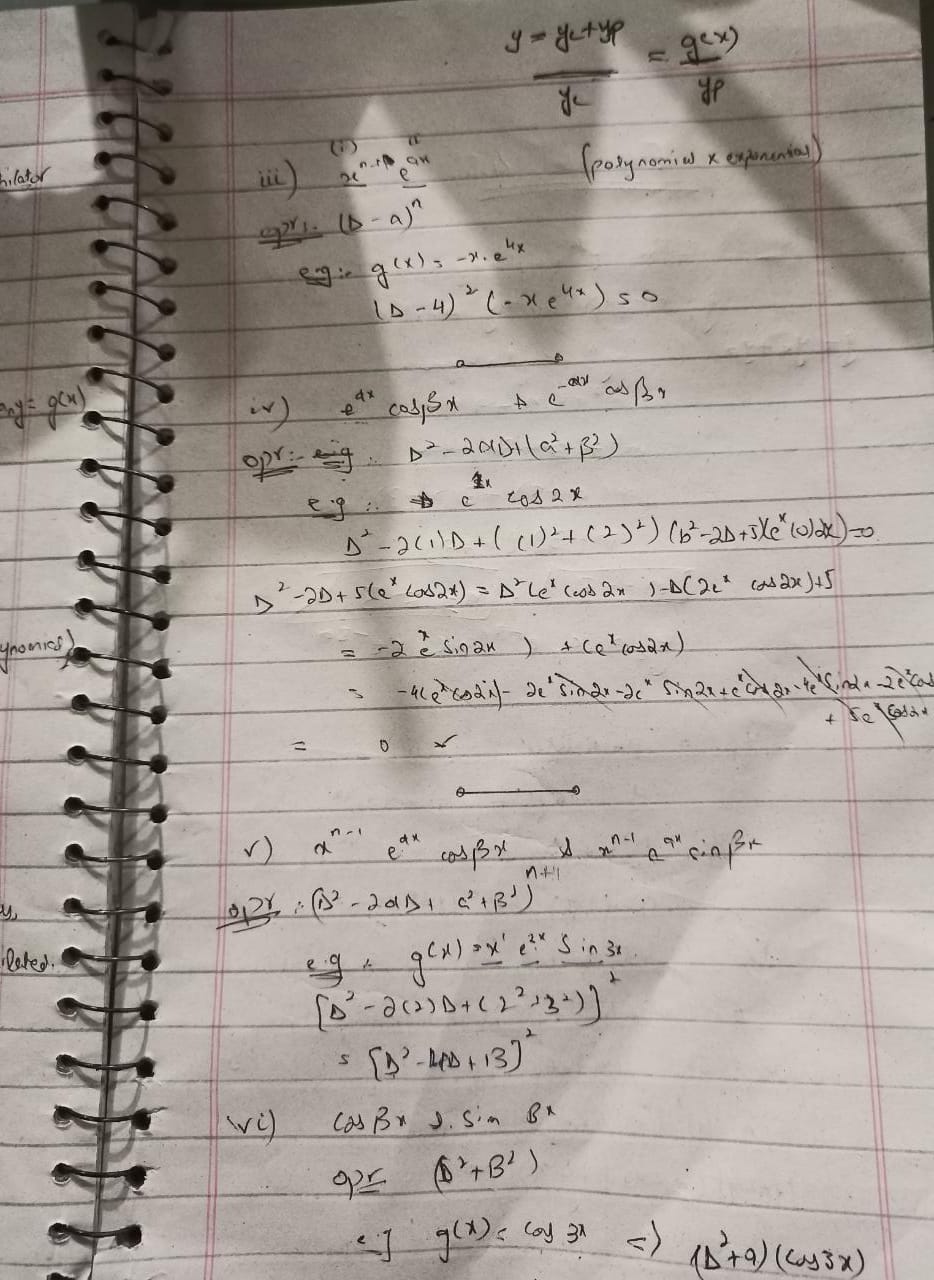 y = yc+yp = g(x)
yc yp
hilator
(i) ii
iii) x^n-1 e^ax (polynomial x exponential)
opr:- (D-a)^n
eg:- g(x) = -x.e^4x
(D-4)^2 (-xe^4x) = 0
any = g(x)
iv) e^αx cosβx & e^-αx cosβx
opr:- D^2-2αD+(α^2+β^2)
e.g :- e^1x cos2x
D^2-2(1)D+((1)^2+(2)^2) (D^2-2D+5)(e^x cos2x)=0
D^2-2D+5(e^x cos2x) = D^2(e^x cos2x)-D(2e^x cos2x)+5
ynomics)
= -2e^x sin2x) + (e^x cos2x)
= -4(e^x cos2x)-2e^x sin2x-2e^x sin2x+e^x cos2x-4e^x sin2x-2e^x cos
+5e^x cos2x
= 0
v) x^n-1 e^αx cosβx & x^n-1 e^αx sinβx
n+1
opr :- (D^2-2αD+α^2+β^2)
y,
lated.
e.g :- g(x) = x^1 e^2x Sin3x.
[D^2-2(2)D+(2^2+3^2)]^2
= [D^2-4D+13]^2
vi) cosBx & Sin Bx
opr (D^2+B^2)
e.g g(x) = cos 3x => (D^2+9)(cos3x)